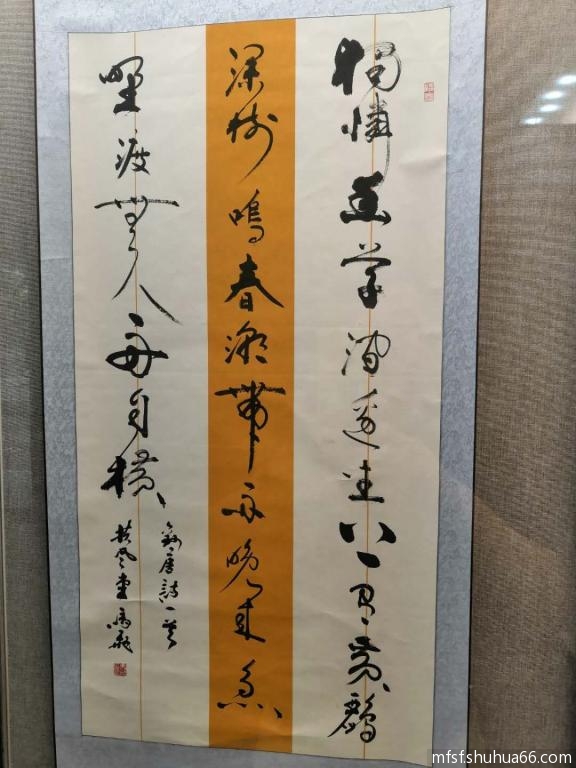 獨憐幽草澗邊生上有黃鸝
深樹鳴春潮帶雨晚來急
野渡無人舟自橫
錄唐詩一首
扶風堂
mfsfshuhua66.com